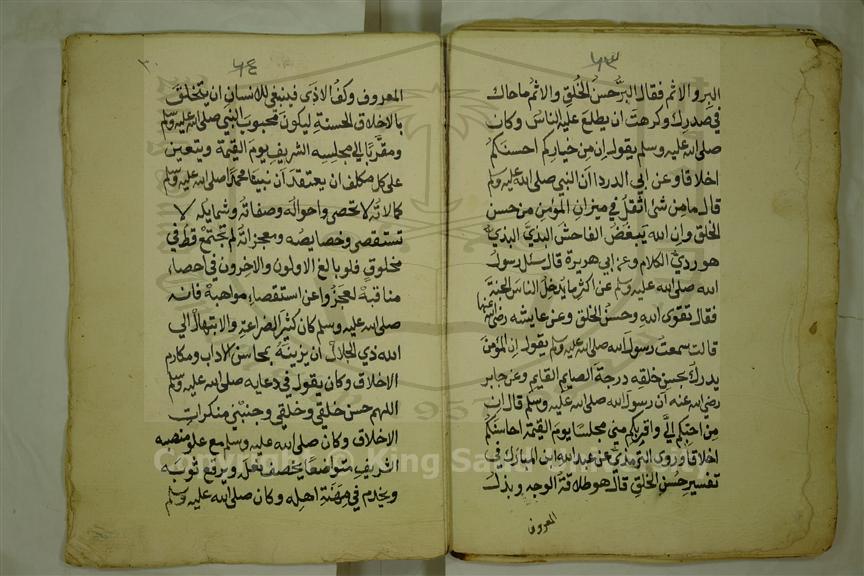 ٦٣
البر والاثم فقال البر حسن الخلق والاثم ما حاك
في صدرك وكرهت ان يطلع عليه الناس وكان
صلى الله عليه وسلم يقول ان من خياركم احسنكم
اخلاقا وعن ابي الدرداء ان النبي صلى الله عليه وسلم
قال ما من شئ اثقل في ميزان المؤمن من حسن
الخلق وان الله يبغض الفاحش البذي البذي
هو ردئ الكلام وعن ابي هريرة قال سئل رسول
الله صلى الله عليه وسلم عن اكثر ما يدخل الناس الجنة
فقال تقوى الله وحسن الخلق وعن عايشه رضي الله عنها
قالت سمعت رسول الله صلى الله عليه وسلم يقول ان المؤمن
يدرك بحسن خلقه درجة الصايم القايم وعن جابر
رضي الله عنه ان رسول الله صلى الله عليه وسلم قال ان
من احبكم الي واقربكم مني مجلسا يوم القيمة احاسنكم
اخلاقا وروى الترمذي عن عبد الله ابن المبارك في
تفسير حسن الخلق قال هو طلاقة الوجه وبذل
المعروف
٦٤
المعروف وكف الاذى فينبغي للانسان ان يتخلق
بالاخلاق الحسنة ليكون محبوب النبي صلى الله عليه وسلم
ومقربا الى مجلسه الشريف يوم القيمة ويتعين
على كل مكلف ان يعتقد ان نبينا محمدا صلى الله عليه وسلم
كمالاته لا تحصى واحواله وصفاته وشمايله لا
تستقصى وخصايصه ومعجزاته لم تجتمع قط في
مخلوق فلو بالغ الاولون والاخرون في احصاء
مناقبه لعجزوا عن استقصاء مواهبه فانه
صلى الله عليه وسلم كان كثير الضراعة والابتهال الى
الله ذي الجلال ان يزينه بمحاسن الاداب ومكارم
الاخلاق وكان يقول في دعايه صلى الله عليه وسلم
اللهم حسن خلقي وخلقي وجنبني منكرات
الاخلاق وكان صلى الله عليه وسلم مع علو منصبه
الشريف متواضعا يخصف نعله ويرقع ثوبه
ويخدم في مهنة اهله وكان صلى الله عليه وسلم
Copyright © King Saud University
1957